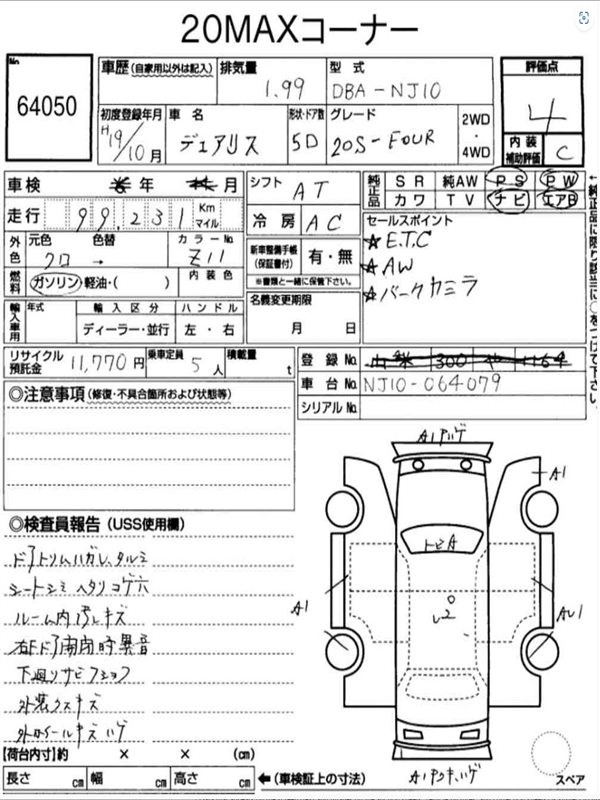 20MAXコーナー
No. 64050
車歴 (自家用以外は記入)
排気量 1.99
型式 DBA-NJ10
評価点 4
初度登録年月 H19/10月
車名 デュアリス
形状・ドア数 5D
グレード 20S-FOUR
2WD・4WD
内装補助評価 C
車検 年 月
シフト AT
純正品 SR 純AW PS PW
カワ TV ナビ エアB
走行 99,231 Km マイル
冷房 AC
セールスポイント
★E.T.C
★AW
★バークカミラ
外色 元色 クロ → 色替 カラーNo. Z11
新車整備手帳 (保証書付) 有・無
※書類と一緒に保管下さい。
燃料 ガソリン・軽油・( ) 内装色
名義変更期限 月 日
輸入車用 年式 輸入区分 ハンドル
ディーラー・並行 左・右
リサイクル預託金 11,770円 乗車定員 5人 積載量 t
登録No.
車台No. NJ10-064079
シリアルNo.
←純正品に限り該当に○をつけて下さい。
◎注意事項 (修復・不具合箇所および状態等)
◎検査員報告 (USS使用欄)
ドアトリムハガレ、タルミ
シートシミ ヘタリ コゲ穴
ルーム内汚レキズ
右Fドア開閉時異音
下廻リサビ
外装ウスキズ
外ホイールキズハゲ
A1ハゲ
A1
トビA
A1
A1キズハゲ
スペア
【荷台内寸】約 × × (cm)
長さ cm 幅 cm 高さ cm ←(車検証上の寸法)